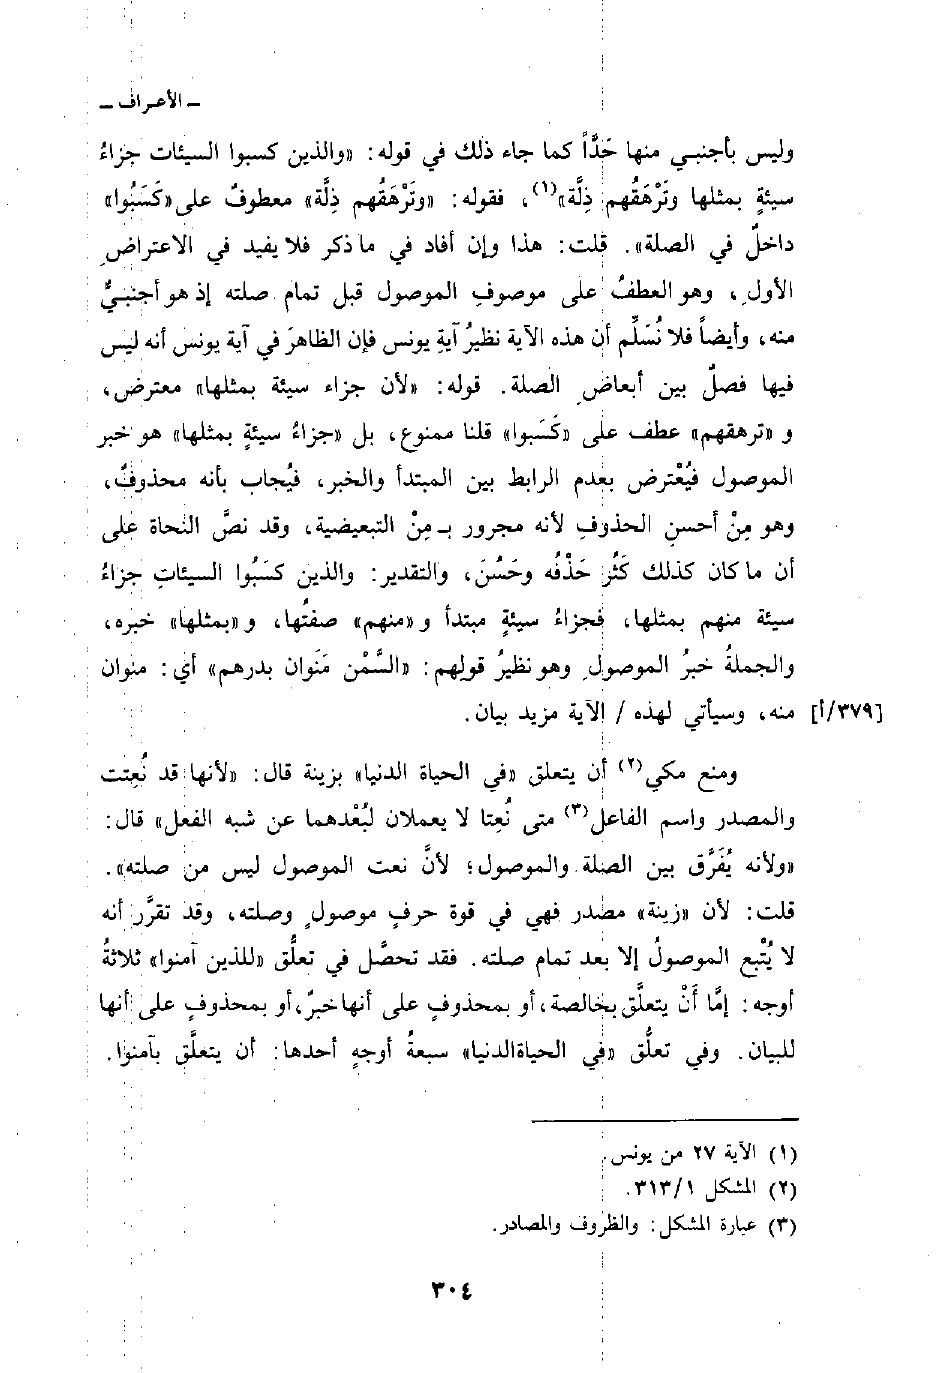 ـ الأعراف ـ
وليس بأجنبي منها جَدَّاً كما جاء ذلك في قوله: «والذين كسبوا السيئات جزاءُ
سيئةٍ بمثلها وتَرْهَقُهم ذِلَّة»(١)، فقوله: «وتَرْهَقُهم ذِلَّة» معطوفٌ على «كَسَبُوا»
داخلٌ في الصلة». قلت: هذا وإن أفاد في ما ذكر فلا يفيد في الاعتراضِ
الأولِ، وهو العطفُ على موصوفِ الموصول قبل تمام صلته إذ هو أجنبيٌّ
منه، وأيضاً فلا نُسَلِّم أن هذه الآية نظيرُ آيةِ يونس فإن الظاهرَ في آية يونس أنه ليس
فيها فصلٌ بين أبعاضِ الصلة. قوله: «لأن جزاء سيئة بمثلها» معترض،
و «ترهقهم» عطف على «كَسَبوا» قلنا ممنوع، بل «جزاءُ سيئةٍ بمثلها» هو خبر
الموصول فيُعْترض بعدم الرابط بين المبتدأ والخبر، فيُجاب بأنه محذوفٌ،
وهو مِنْ أحسنِ الحذوفِ لأنه مجرور بـ مِنْ التبعيضية، وقد نصَّ النحاة على
أن ما كان كذلك كَثُر حَذْفُه وحَسُنَ، والتقدير: والذين كسَبُوا السيئاتِ جزاءُ
سيئة منهم بمثلها، فجزاءُ سيئةٍ مبتدأ و «منهم» صفتُها، و «بمثلها» خبره،
والجملةُ خبرُ الموصولِ وهو نظيرُ قولِهم: «السَّمْن مَنَوان بدرهم» أي: منوان
[٣٧٩/أ] منه، وسيأتي لهذه / الآية مزيد بيان.
ومنع مكي(٢) أن يتعلق «في الحياة الدنيا» بزينة قال: «لأنها قد نُعِتت
والمصدر واسم الفاعل(٣) متى نُعِتا لا يعملان لبُعْدهما عن شبه الفعل» قال:
«ولأنه يُفَرَّق بين الصلة والموصول؛ لأنَّ نعت الموصول ليس من صلته».
قلت: لأن «زينة» مصدر فهي في قوة حرفٍ موصولٍ وصلته، وقد تقرَّر أنه
لا يُتْبع الموصولُ إلا بعد تمام صلته. فقد تحصَّل في تعلُّق «للذين آمنوا» ثلاثةُ
أوجه: إمَّا أَنْ يتعلَّق بخالصة، أو بمحذوفٍ على أنها خبرٌ، أو بمحذوفٍ على أنها
للبيان. وفي تعلُّق «في الحياة الدنيا» سبعةُ أوجهٍ أحدها: أن يتعلَّق بآمنوا.
(١) الآية ٢٧ من يونس.
(٢) المشكل ٣١٣/١.
(٣) عبارة المشكل: والظروف والمصادر.
٣٠٤